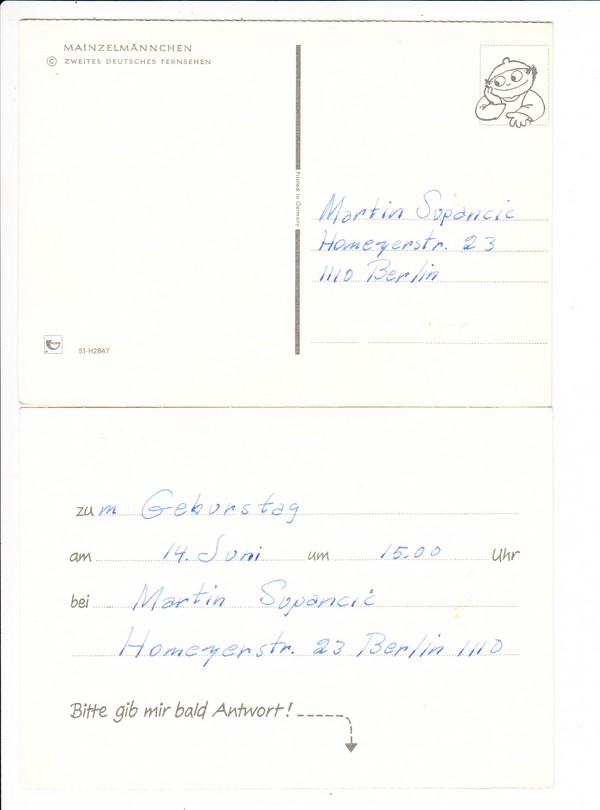 MAINZELMÄNNCHEN
© ZWEITES DEUTSCHES FERNSEHEN
Printed in Germany
Martin Supancic
Homeyerstr. 23
1110 Berlin
51-H2847
zum Geburstag
am 14. Juni um 15.00 Uhr
bei Martin Supancic
Homeyerstr. 23 Berlin 1110
Bitte gib mir bald Antwort!